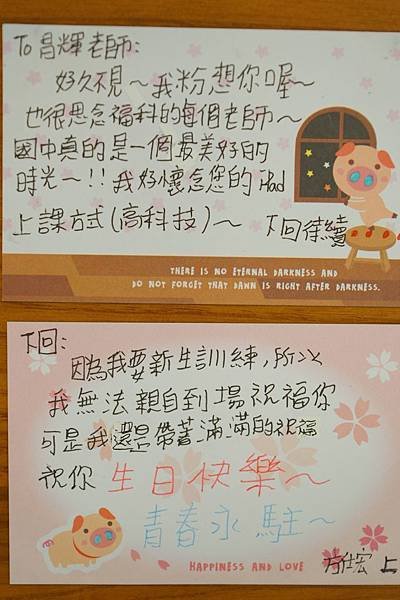 To 昌輝老師:
好久不見～我粉想你喔～
也很思念福科的每個老師～
國中真的是一個最美好的
時光～!! 我好懷念您的 iPad
上課方式(高科技)～ 下回待續
THERE IS NO ETERNAL DARKNESS AND
DO NOT FORGET THAT DAWN IS RIGHT AFTER DARKNESS.
下回:
因為我要新生訓練,所以
我無法親自到場祝福你
可是我還是帶著滿滿的祝福
祝你 生日快樂～
青春永駐～
HAPPINESS AND LOVE
方仕宏 上